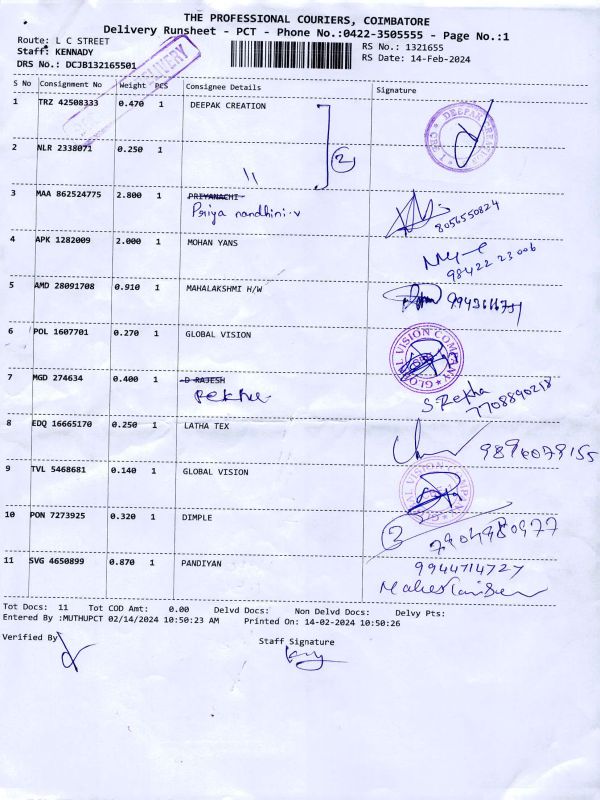 THE PROFESSIONAL COURIERS, COIMBATORE
Delivery Runsheet - PCT - Phone No.:0422-3505555 - Page No.:1
Route: L C STREET
RS No.: 1321655
Staff: KENNADY
RS Date: 14-Feb-2024
DRS No.: DCJB132165501
DELIVERY
S No Consignment No Weight PCS Consignee Details Signature
1 TRZ 42508333 0.470 1 DEEPAK CREATION
2 NLR 2338071 0.250 1 "
2
3 MAA 862524775 2.800 1 PRIYANACHI
Priya nandhini.v
8056550824
4 APK 1282009 2.000 1 MOHAN YANS
98422 23006
5 AMD 28091708 0.910 1 MAHALAKSHMI H/W
6 POL 1607701 0.270 1 GLOBAL VISION
GLOBAL VISION COMPANY
7 MGD 274634 0.400 1 D RAJESH
Rekha
S Rekha
7708890218
8 EDQ 16665170 0.250 1 LATHA TEX
9 TVL 5468681 0.140 1 GLOBAL VISION
10 PON 7273925 0.320 1 DIMPLE
11 SVG 4650899 0.870 1 PANDIYAN
9944714727
Tot Docs: 11 Tot COD Amt: 0.00 Delvd Docs: Non Delvd Docs: Delvy Pts:
Entered By :MUTHUPCT 02/14/2024 10:50:23 AM Printed On: 14-02-2024 10:50:26
Verified By
Staff Signature